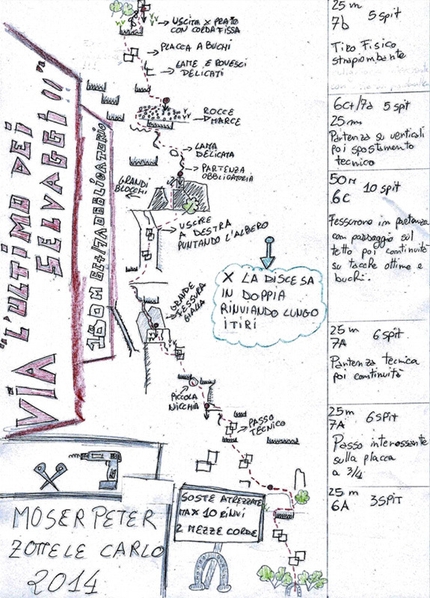 VIA "L'ULTIMO DEI
SELVAGGI!!"
150M 6C+/7A OBBLIGATORIO
USCITA X PRATO
CON CORDA FISSA
PLACCA A BUCHI
LAME E ROVESCI
DELICATI
ROCCE
MARCE
LAMA
DELICATA
PARTENZA
OBBLIGATORIA
GRANDI
BLOCCHI
USCIRE
A DESTRA
PUNTANDO L'ALBERO
X LA DISCESA
IN DOPPIA
RINVIANDO LUNGO
I TIRI
GRANDE
FESSURA
GIALLA
PICCOLA
NICCHIA
PASSO
TECNICO
SOSTE ATREZZATE
MAX 10 RINVI
2 MEZZE CORDE
MOSER PETER
ZOTTELE CARLO
2014
25m
7b 5 spit
Tiro Fisico
strapiombante
6C+/7a 5 spit
25m
Partenza su verticali
poi spostamento
tecnico
50m
6C 10 spit
Fessurone in partenza
con passaggio sul
tetto poi continuità
su tacche ottime e
buchi.
25m
7A 6 spit
Partenza tecnica
poi continuità
25m
7A 6 spit
Passo interessante
sulla placca
a 3/4
25m
6A 3 SPIT